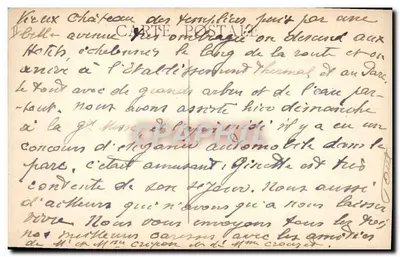 Vieux Château des Templiers puis par une
belle avenue très ombragé on descend aux
CARTE POSTALE
Hotels échelonnés le long de la route et on
arrive à l'Etablissement Thermal et au Parc
le tout avec de grands arbres et de l'eau par-
-tout. nous avons assisté hier dimanche
à la gd messe et il y a eu un
concours d'élégance automobile dans le
parc. c'était amusant. Ginette est très
contente de son séjour. Nous aussi
d'ailleurs qui n'avons qu'à nous laisser
vivre. Nous vous envoyons tous les trois
nos meilleures caresses avec les amitiés
de Mr et Mme Crépon et de Mme